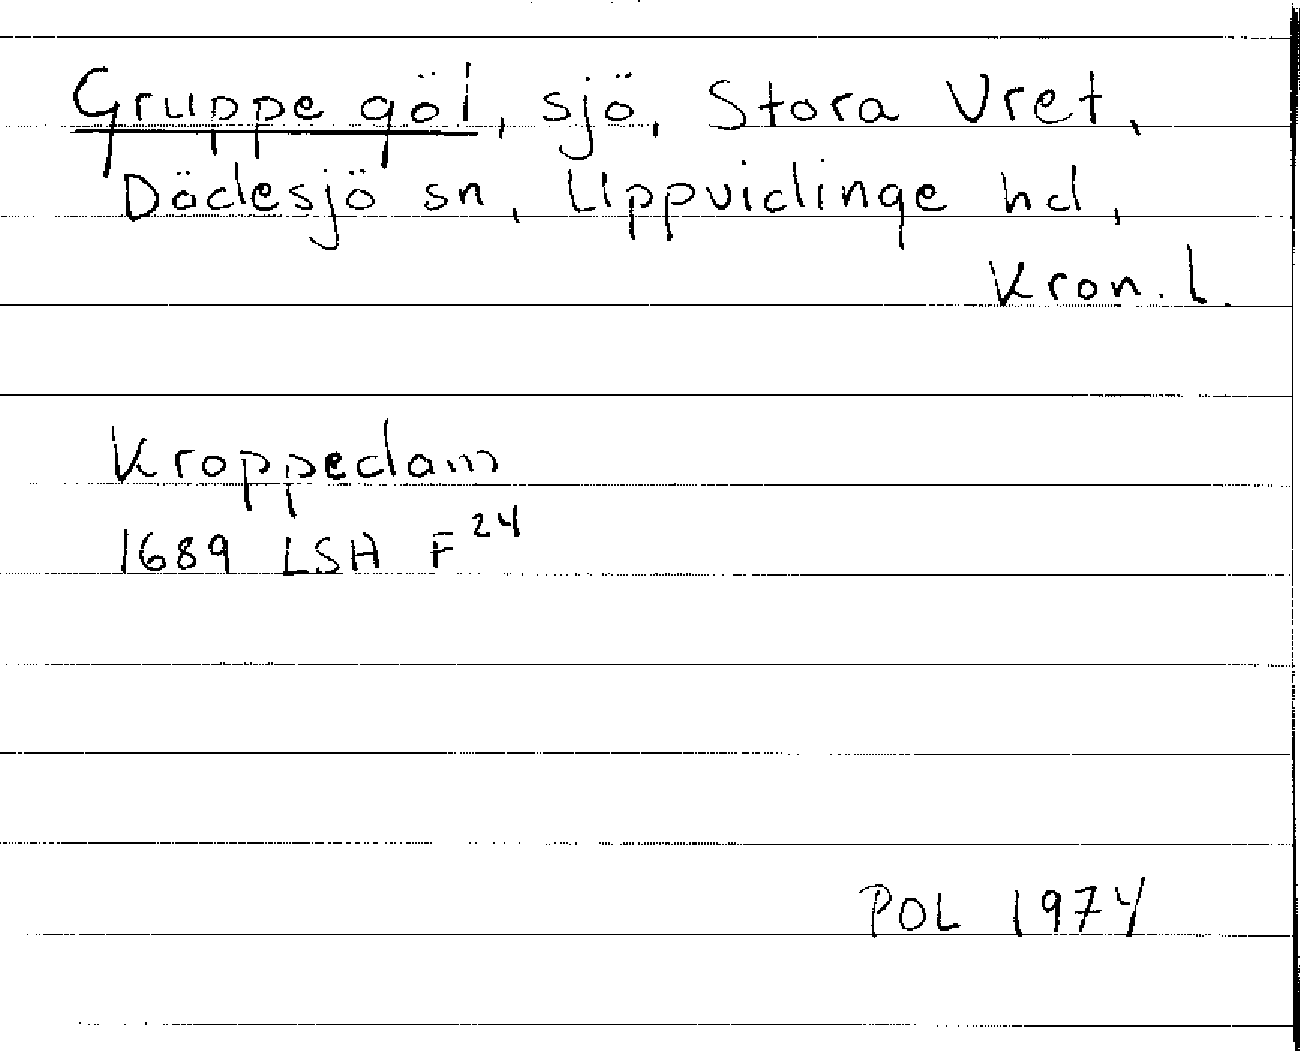 Gruppe göl, sjö, Stora Vret,
Dädesjö sn, Uppvidinge hd,
Kron. l.
Kroppedam
1689 LSA F 24
POL 1974